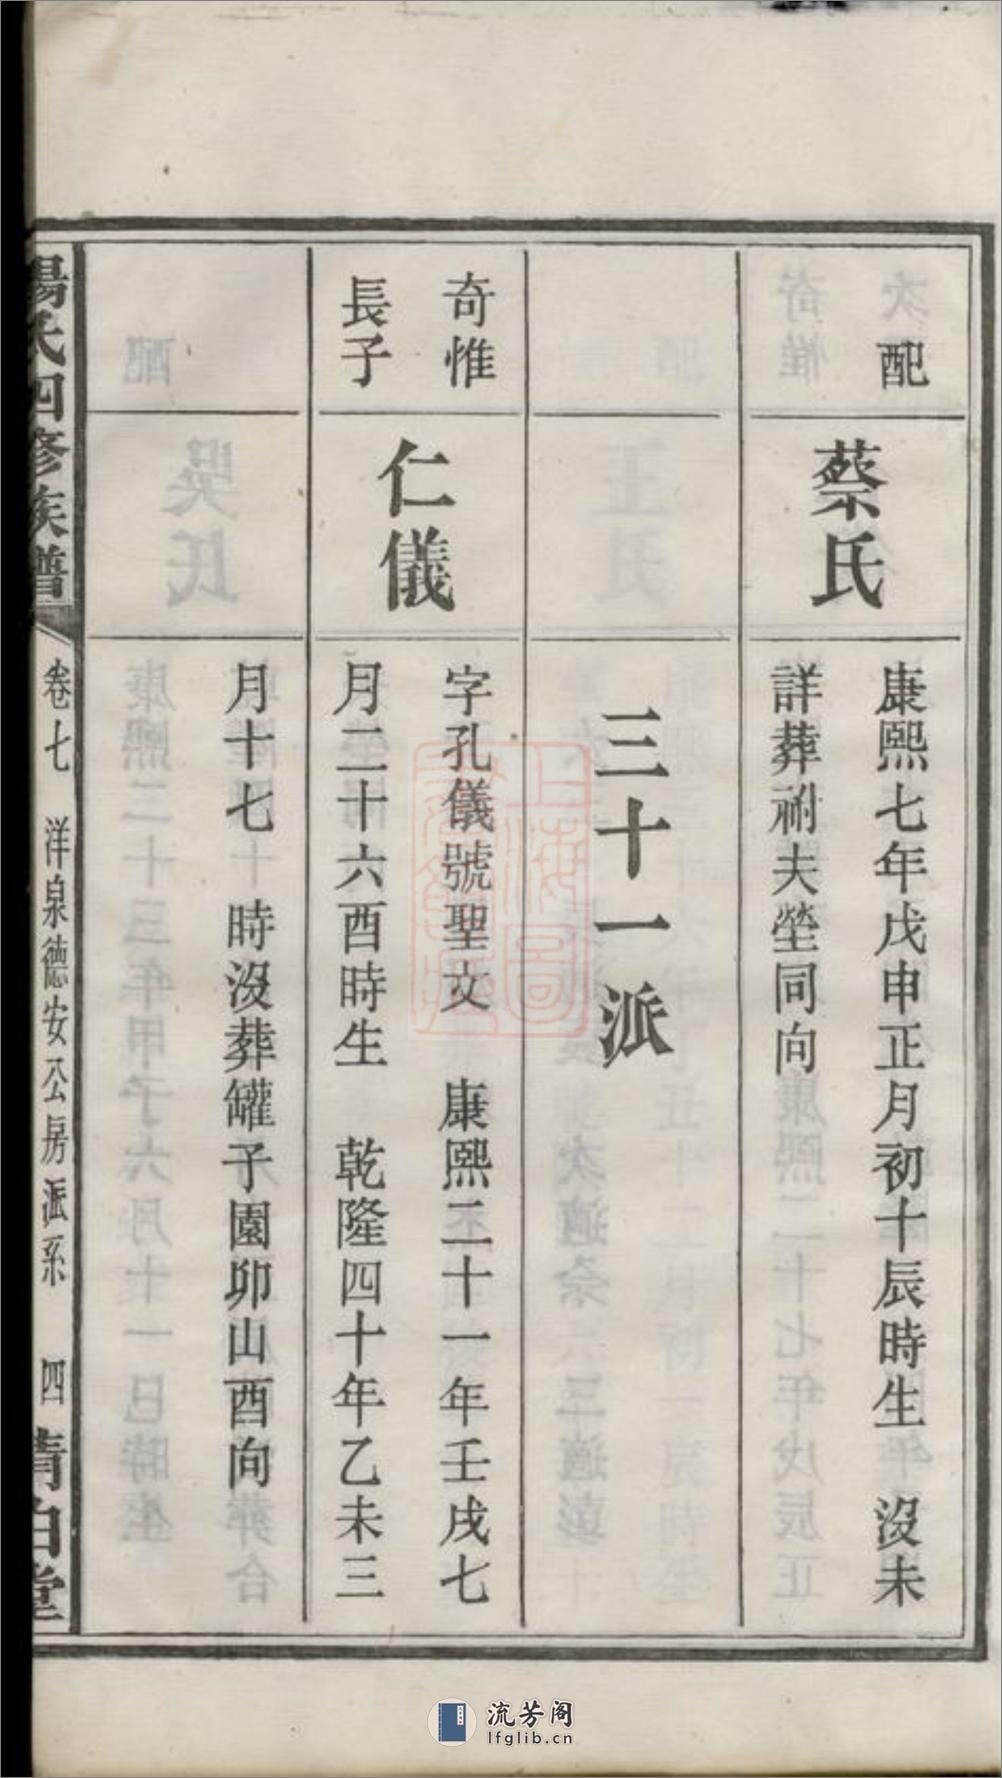 配
蔡氏
康熙七年戊申正月初十辰時生　沒未
詳葬祔夫塋同向
三十一派
奇惟
長子
仁儀
字孔儀號聖文　康熙二十一年壬戌七
月二十六酉時生　乾隆四十年乙未三
月十七　時沒葬罐子園卯山酉向
楊氏四修族譜
卷七　洋泉德安公房派系　四
清白堂
上海圖
流芳阁
lfglib.cn